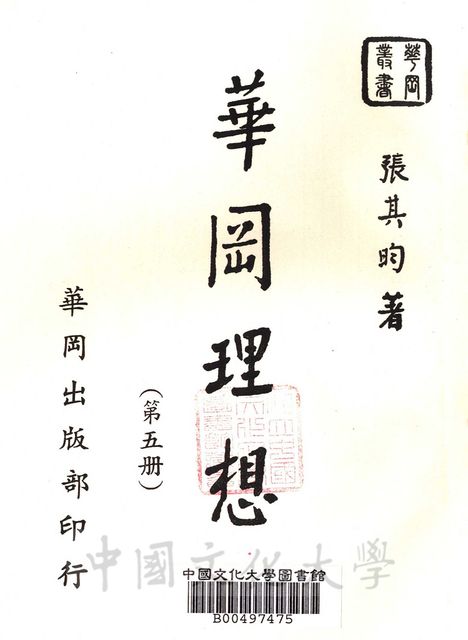 華岡
叢書
張其昀著
華岡理想
(第五册)
華岡出版部印行
中國文化大學
中國文化大學圖書館
B00497475